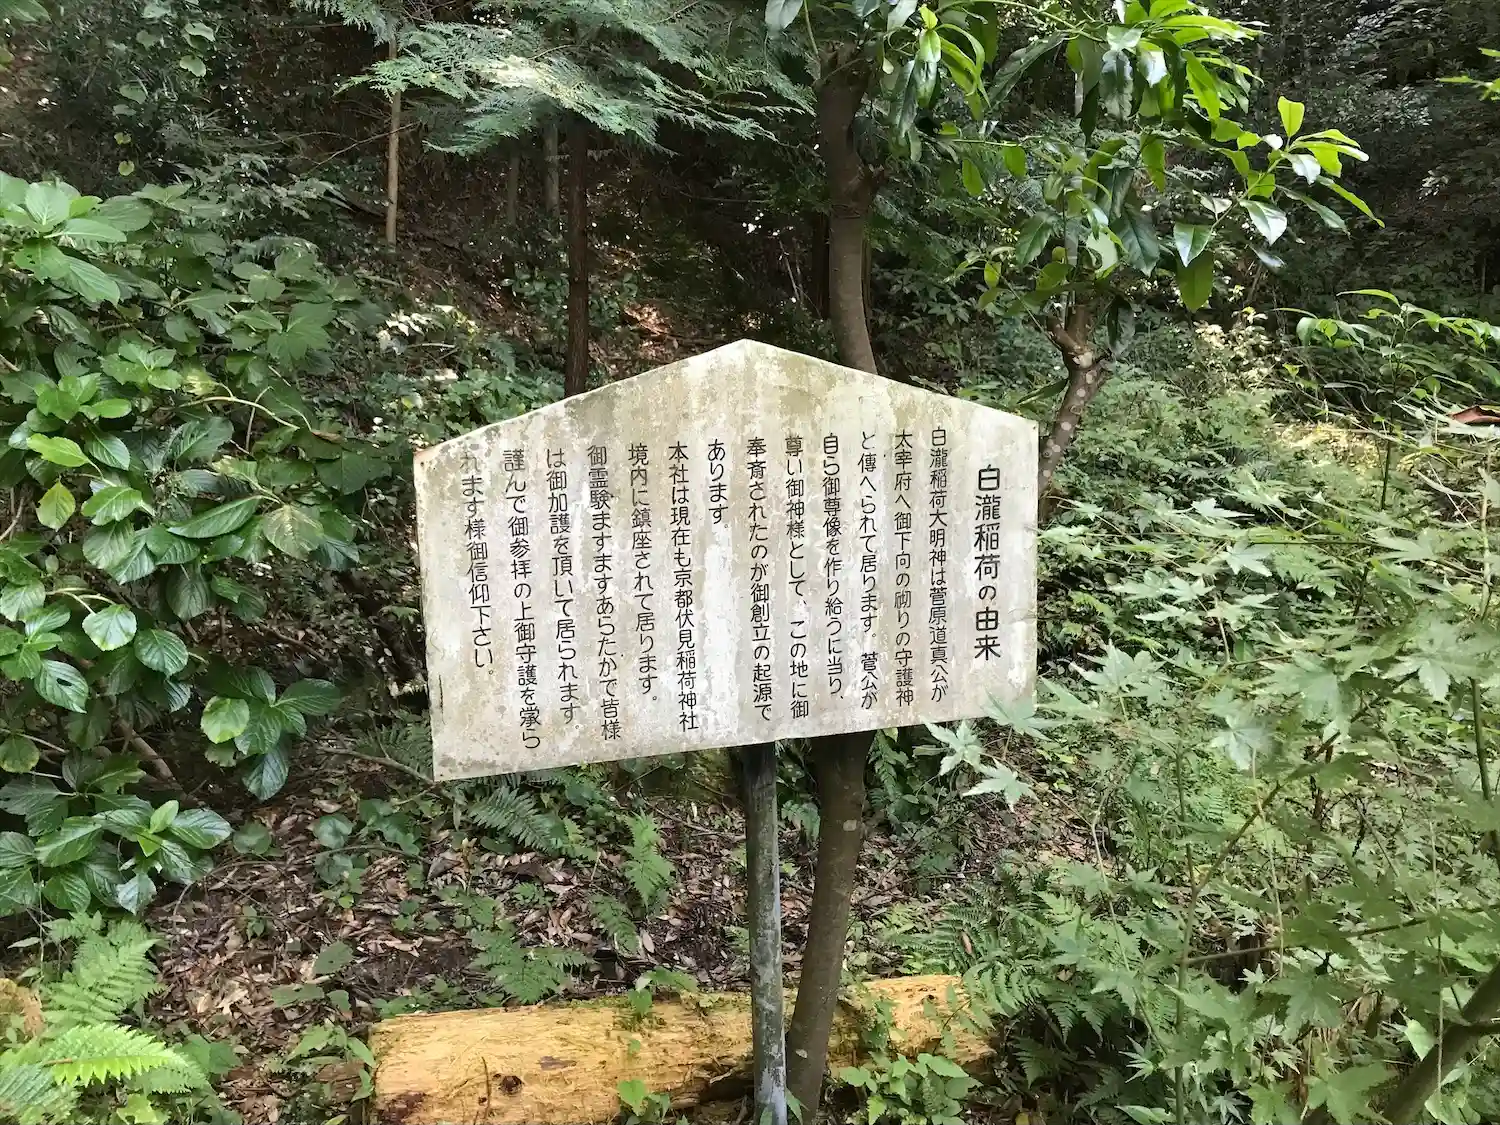 白瀧稲荷の由来
白瀧稲荷大明神は菅原道真公が
太宰府へ御下向の砌りの守護神
と傳へられて居ります。菅公が
自ら御尊像を作り給うに当り、
尊い御神様として、この地に御
奉斎されたのが御創立の起源で
あります。
本社は現在も京都伏見稲荷神社
境内に鎮座されて居ります。
御霊験ますますあらたかで皆様
は御加護を頂いて居られます。
謹んで御参拝の上御守護を蒙ら
れます様御信仰下さい。